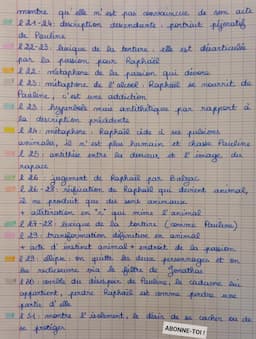 montre qu'elle n'est pas convaincue de son acte
l 21-24: description descendante, portrait péjoratif
de Pauline
l 22-23: lexique de la torture, elle est désarticulée
par la passion pour Raphaël
l 22: métaphore de la passion qui dévore
l 23: métaphore de l'alcool: Raphaël se nourrit de
Pauline, c'est une addiction
l 23: hyperbole mais antithétique par rapport à
la description précédente
l 24: métaphore: Raphaël cède à ses pulsions
animales, il n'est plus humain et chasse Pauline
l 25: antithèse entre la douceur et l'image du
rapace
l 26: jugement de Raphaël par Balzac
l 26-28: réification de Raphaël qui devient animal,
il ne produit que du sons animaux
+ allitération en "r" qui mime l'animal
l 27-28: lexique de la torture (comme Pauline)
l 29: transformation définitive en animal
+ acte d'instinct animal + endroit de la passion
l 29: ellipse: on quitte les deux personnages et on
les redécouvre via le filtre de Jonathas
l 30: comble du désespoir de Pauline, le cadavre lui
appartient, perdre Raphaël est comme perdre une
partie d'elle
l 31: montre l'isolement, le désir de se cacher ou de
se protéger
ABONNE-TOI!